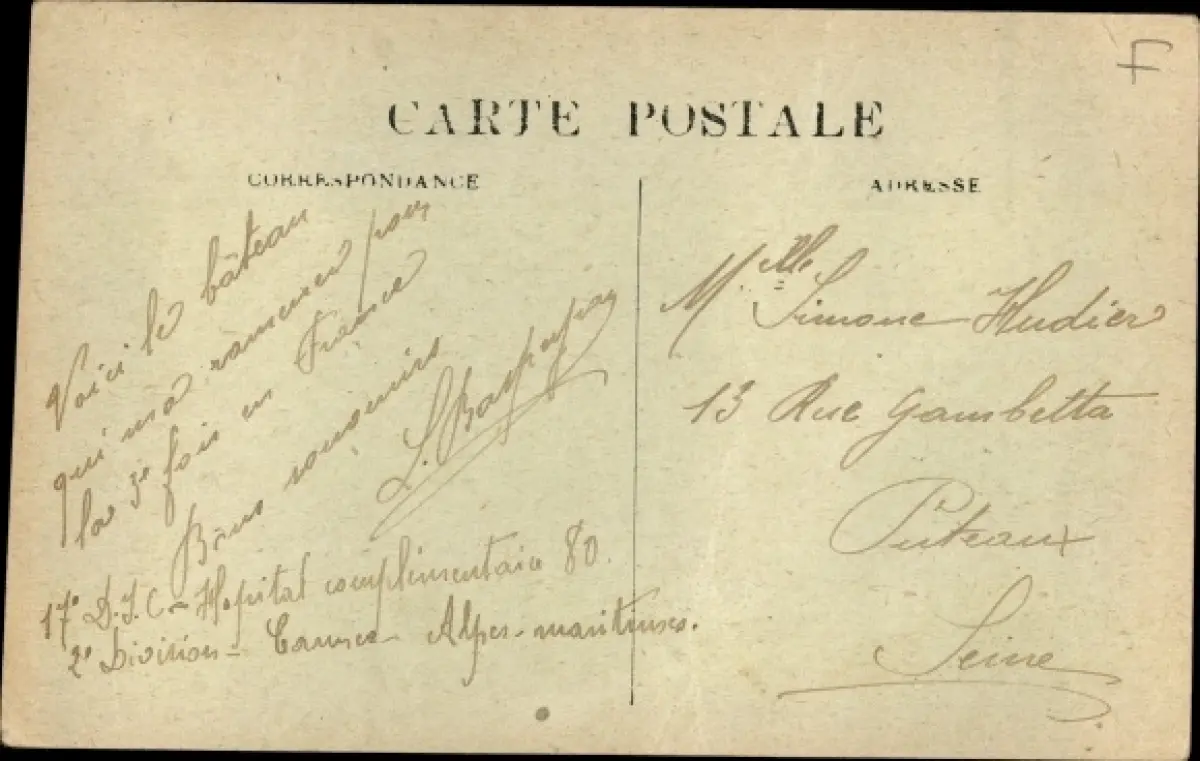 F
CARTE POSTALE
CORRESPONDANCE
Voici le bâteau
qui m'a ramener pour
la 3e fois en France
Bons souvenirs
L.
17e D.I.C - Hopital complimentaire 80.
2e Division - Cannes - Alpes-maritimes.
ADRESSE
Melle Simone Hudier
13 Rue Gambetta
Puteaux
Seine